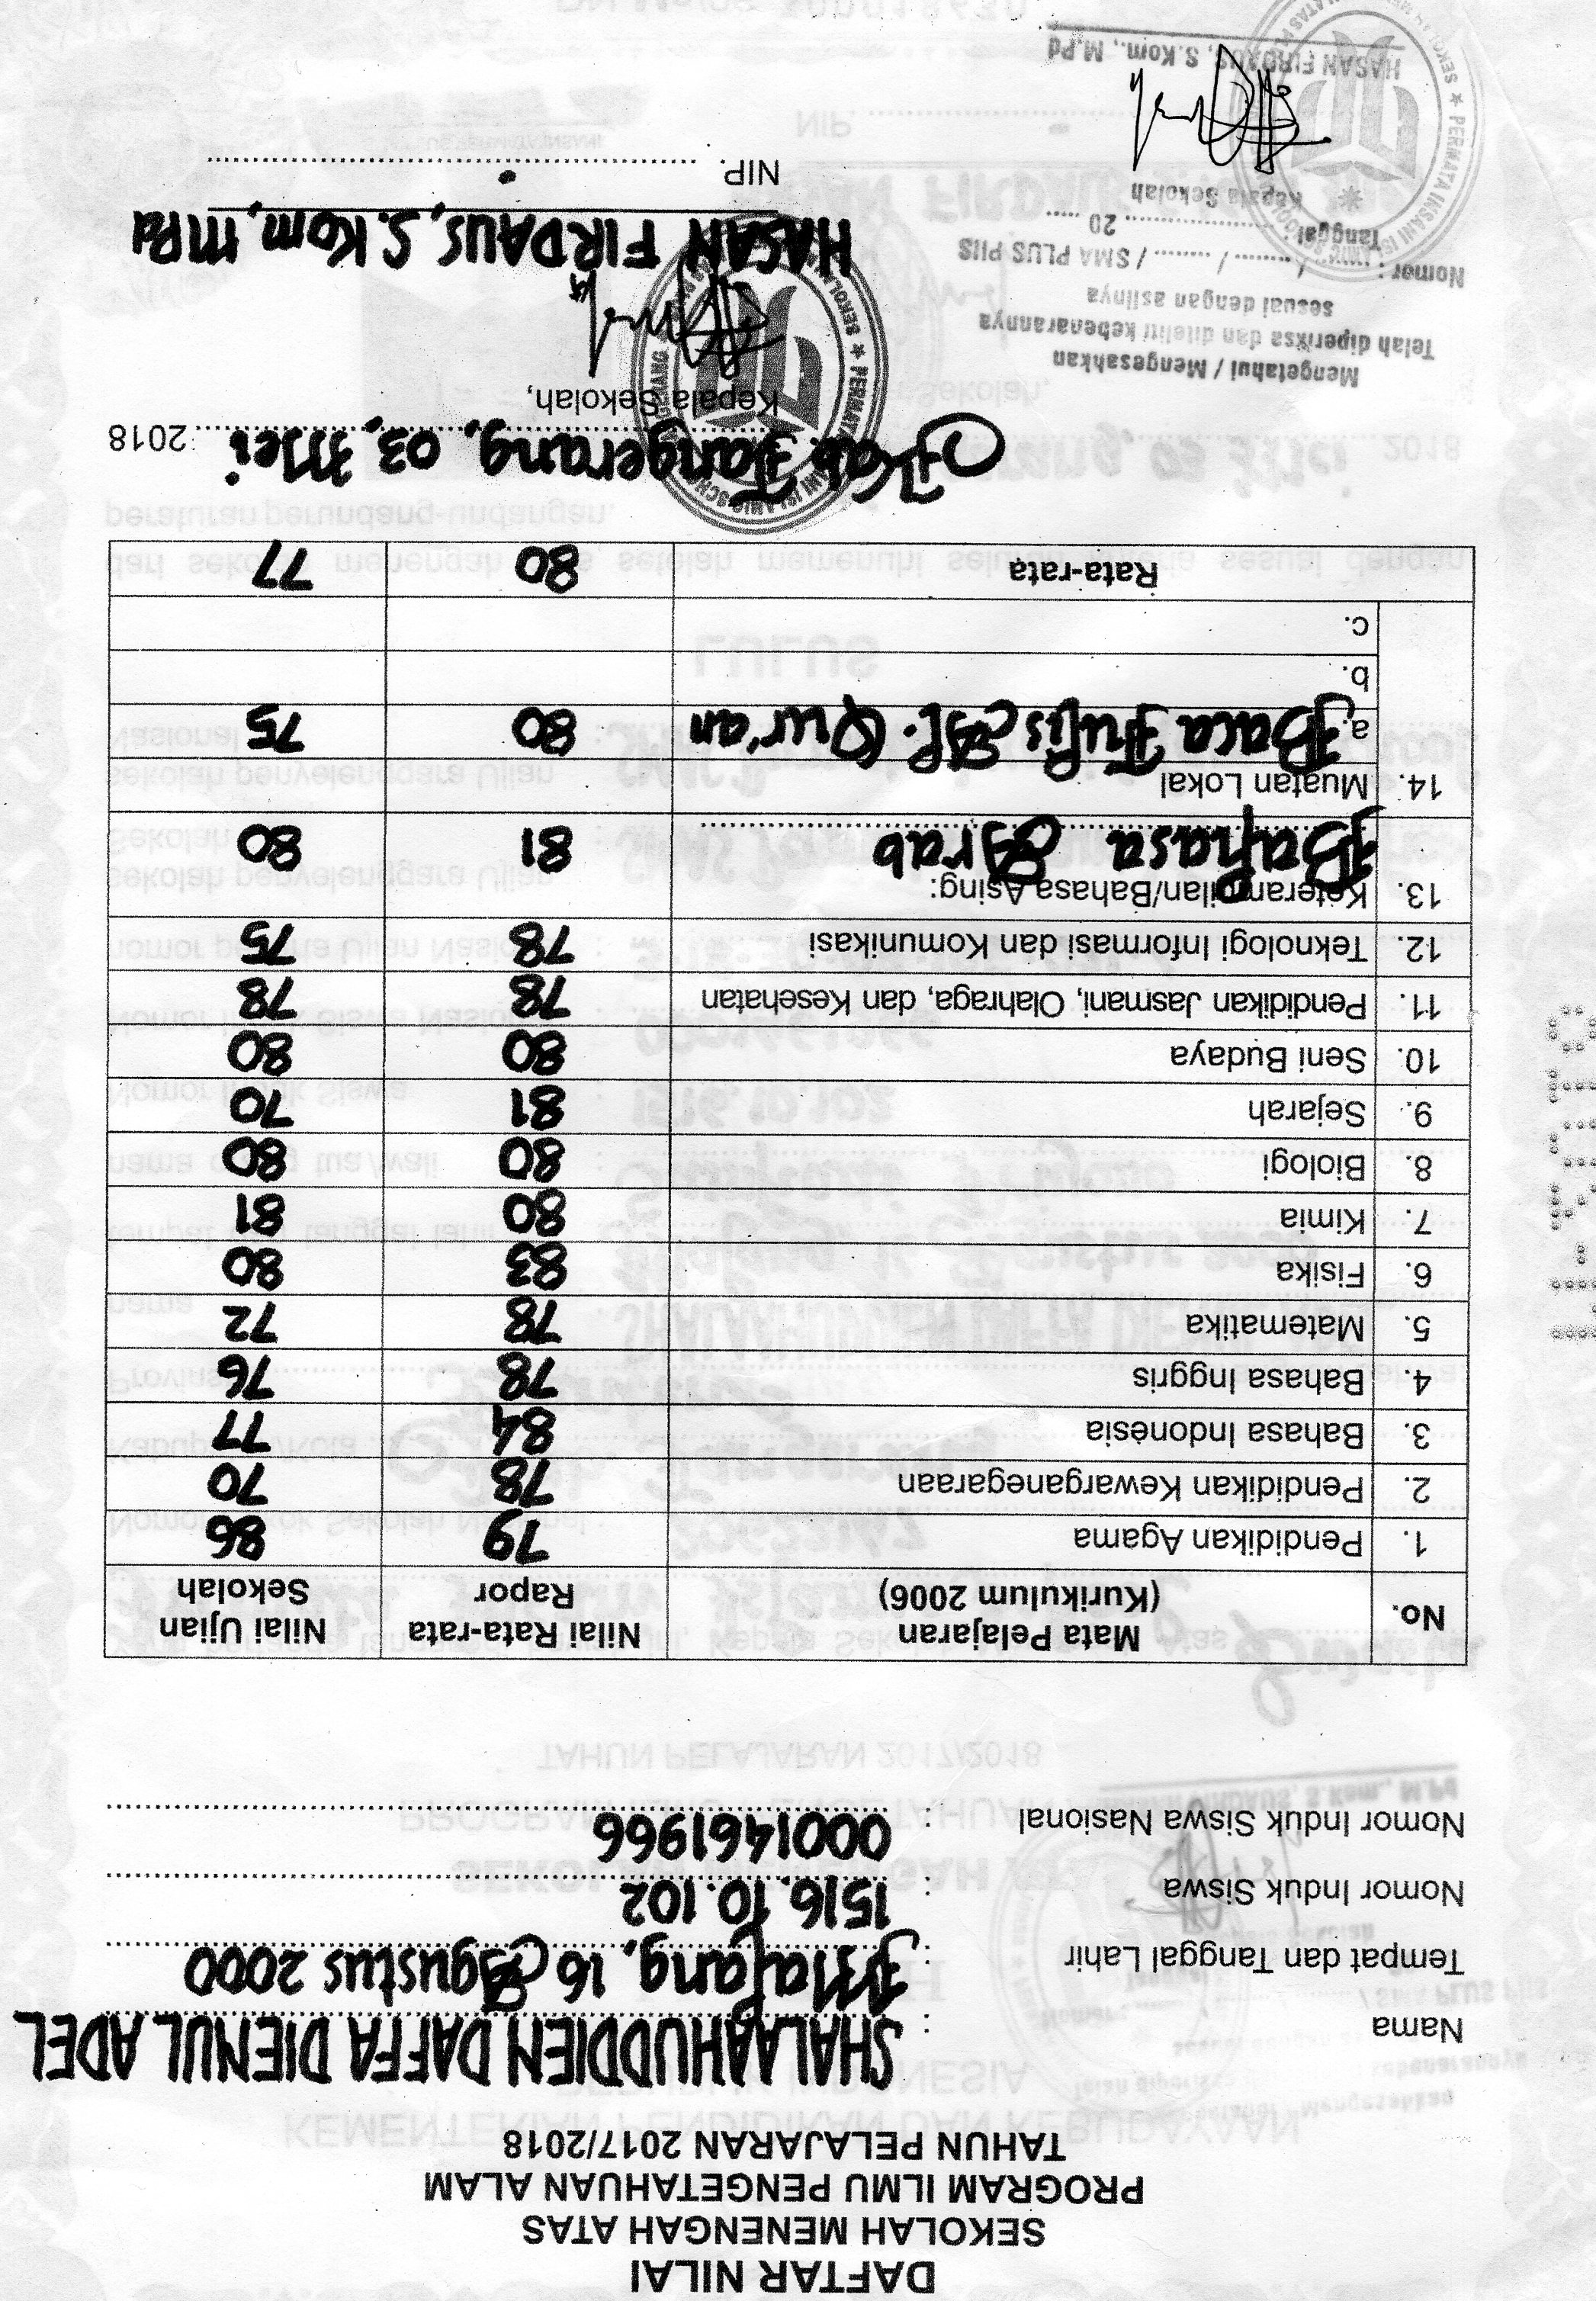 DAFTAR NILAI
SEKOLAH MENENGAH ATAS
PROGRAM ILMU PENGETAHUAN ALAM
TAHUN PELAJARAN 2017/2018
Nama : SHALAAHUDDIEN DAFFA DIENUL ADEL
Tempat dan Tanggal Lahir : Malang, 16 Agustus 2000
Nomor Induk Siswa : 1516.10.102
Nomor Induk Siswa Nasional : 0001461966
No. Mata Pelajaran (Kurikulum 2006) Nilai Rata-rata Rapor Nilai Ujian Sekolah
1. Pendidikan Agama 79 86
2. Pendidikan Kewarganegaraan 78 70
3. Bahasa Indonesia 84 77
4. Bahasa Inggris 78 76
5. Matematika 78 72
6. Fisika 83 80
7. Kimia 80 81
8. Biologi 80 80
9. Sejarah 81 70
10. Seni Budaya 80 80
11. Pendidikan Jasmani, Olahraga, dan Kesehatan 78 78
12. Teknologi Informasi dan Komunikasi 78 75
13. Keterampilan/Bahasa Asing:
Bahasa Arab 81 80
14. Muatan Lokal
a. Baca Tulis Al-Qur'an 80 75
b.
c.
Rata-rata 80 77
Kab. Tangerang, 03, Mei 2018
Kepala Sekolah,
HASAN FIRDAUS, S.Kom, MPd
NIP. -
Mengetahui / Mengesahkan
Telah diperiksa dan diteliti kebenarannya
sesuai dengan aslinya
Nomor : ....... / ........ / ........ / SMA PLUS PIIS
Tanggal : ...................... 20 .....
Kepala Sekolah
PERMATA INSANI ISLAMIC SCHOOL
HASAN FIRDAUS, S.Kom., M.Pd